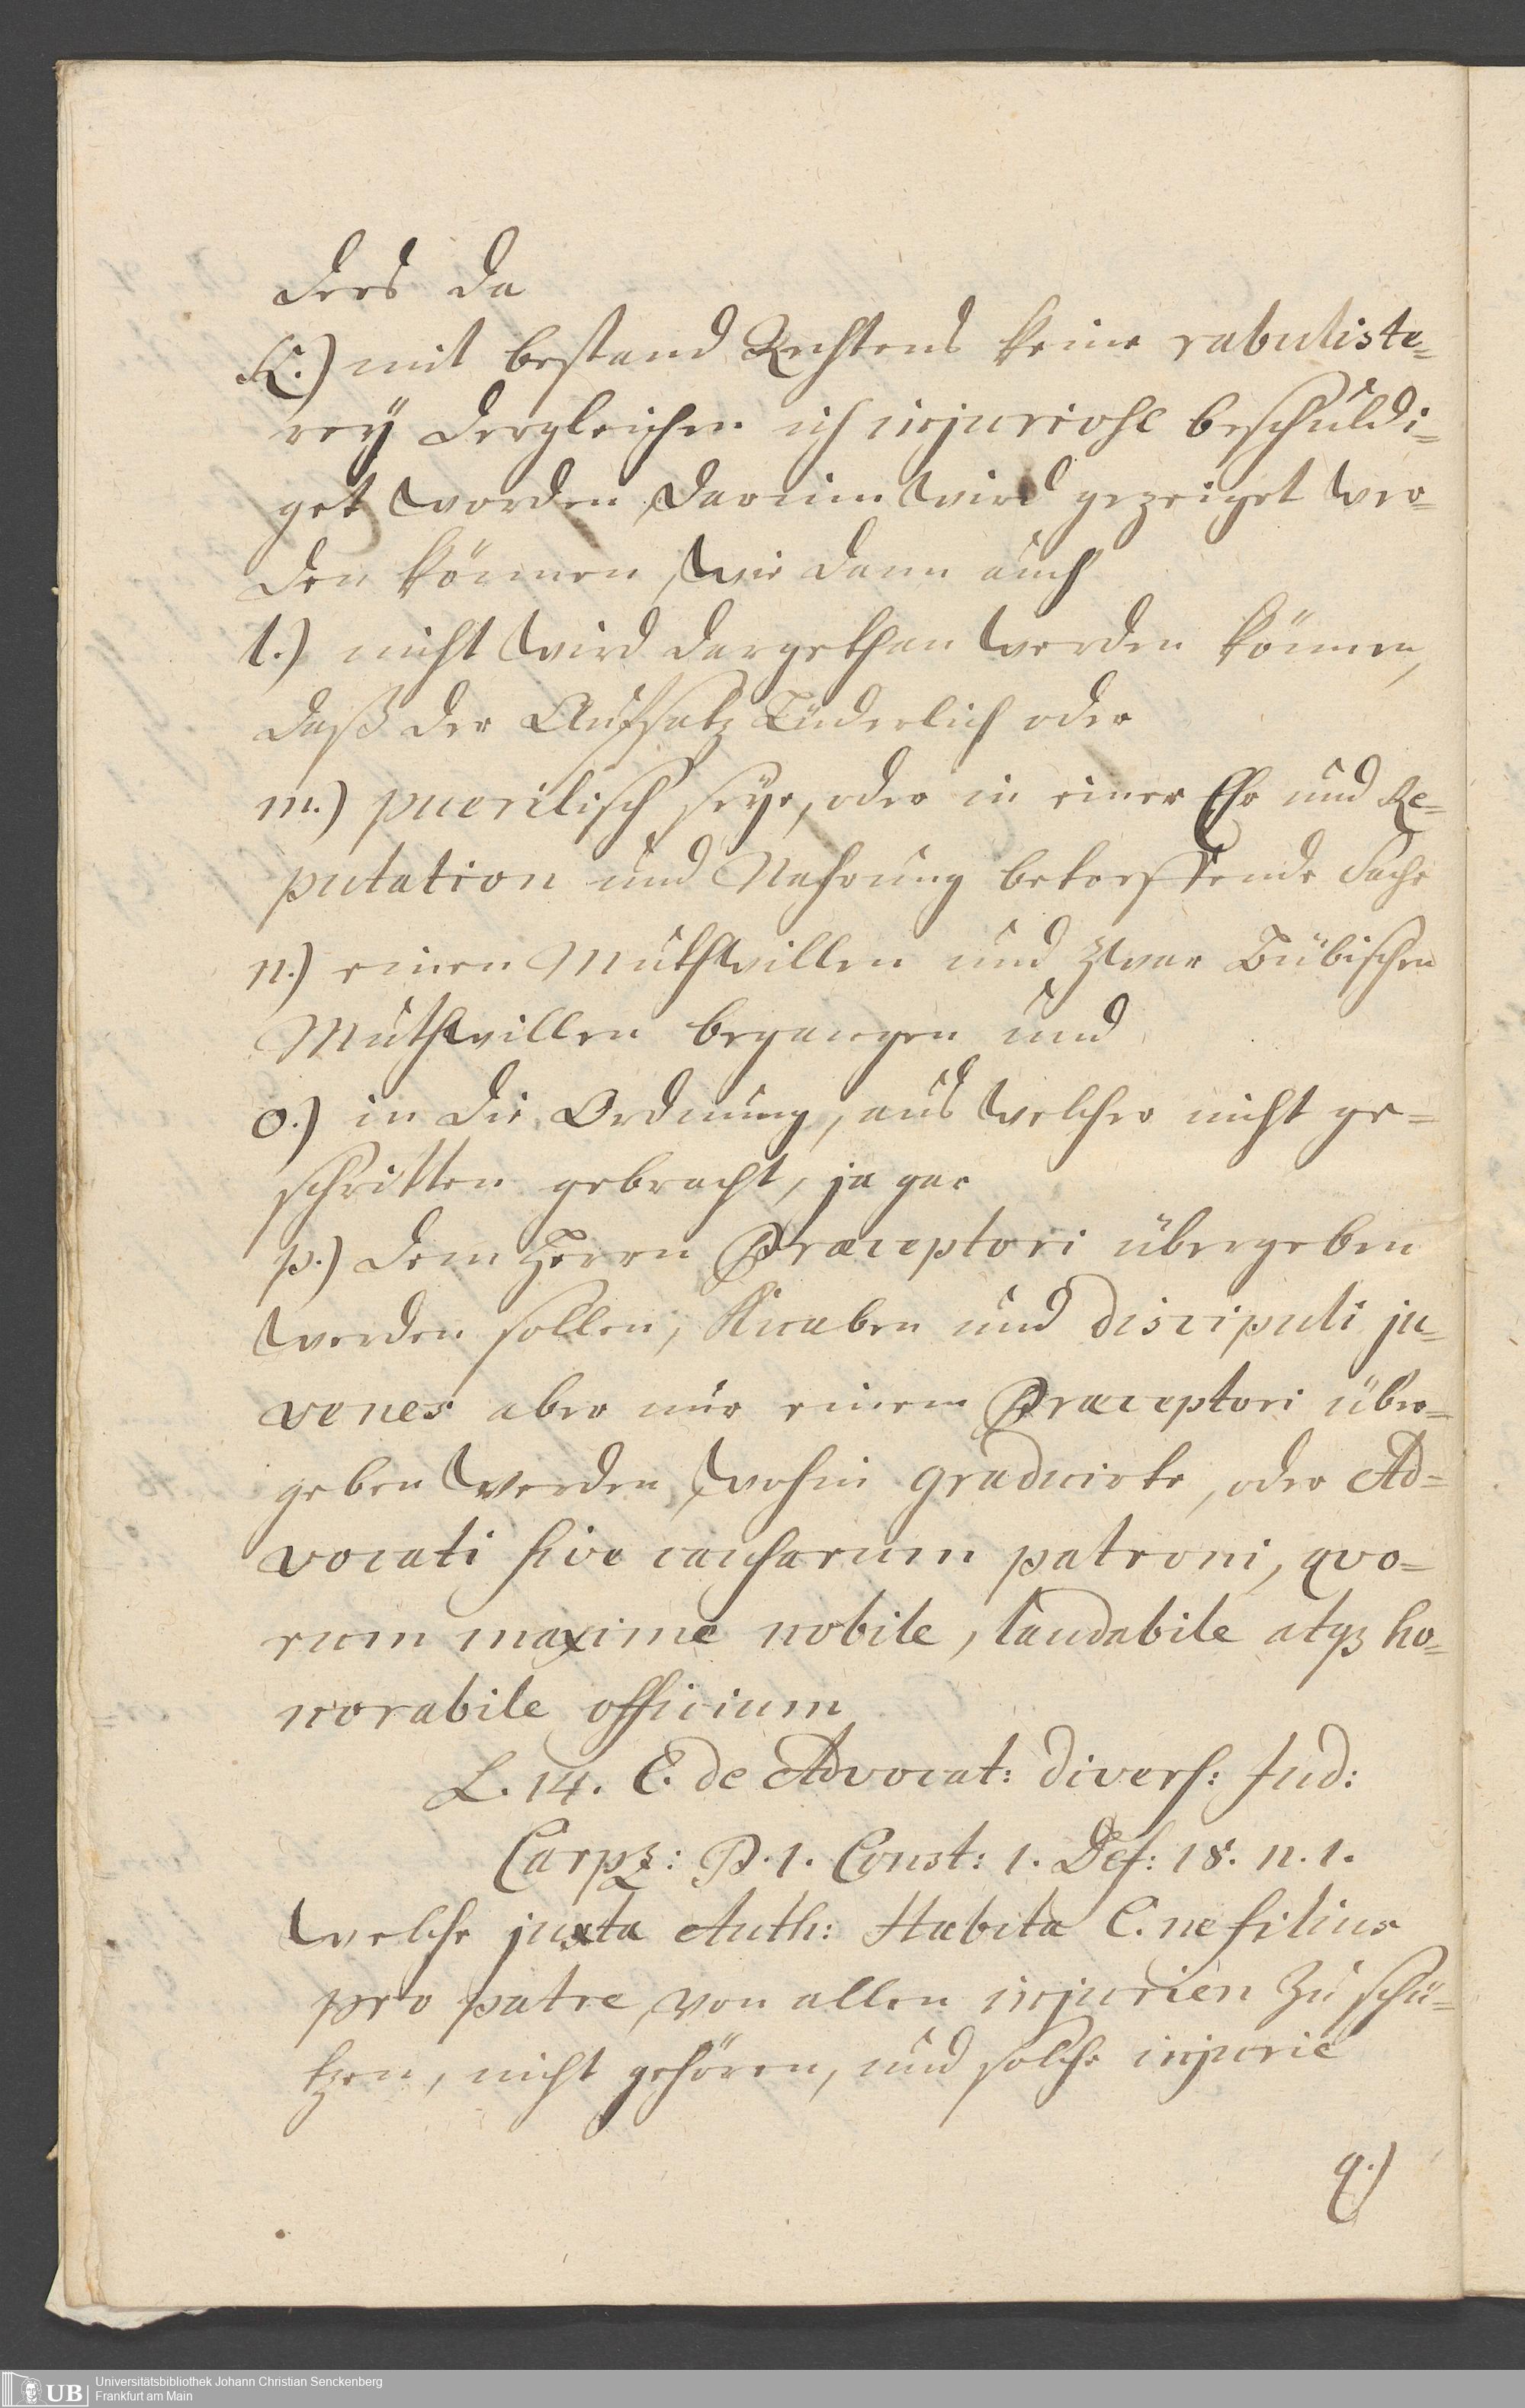 ders da
K.) mit bestand Rechtens keine rabuliste¬
rey dergleichen ich injuriose beschuldi¬
get worden, darinn wird gezeiget wer¬
den können, wie dann auch
l.) nicht wird dargethan werden können,
daß der Aufsatz Lüderlich oder
m.) puerilisch seye, oder in einer Ehr und Re¬
putation und Nahrung betreffende Sache
n.) einen Muthwillen und zwar Bübischen
Muthwillen begangen und
o.) in die Ordnung, aus welcher nicht ge=
schritten gebracht, ja gar
p.) dem Herrn Præceptori übergeben
werden sollen, Knaben und discipuli ju¬
venes aber nur einem Præceptori über¬
geben werden, wohin graduirte, oder Ad=
vocati sive causarum patroni, qvo=
rum maxime nobile, laudabile atqz ho¬
norabile officium
L. 14. C. de Advocat: divers: Jud:
Carpz: P. 1. Const: 1. Def: 18. n. 1.
welche juxta Auth: Habita C. ne filius
pro patre, von allen injurien zu schü¬
tzen, nicht gehören, und solche injurie
q.)
UB
Universitätsbibliothek Johann Christian Senckenberg
Frankfurt am Main